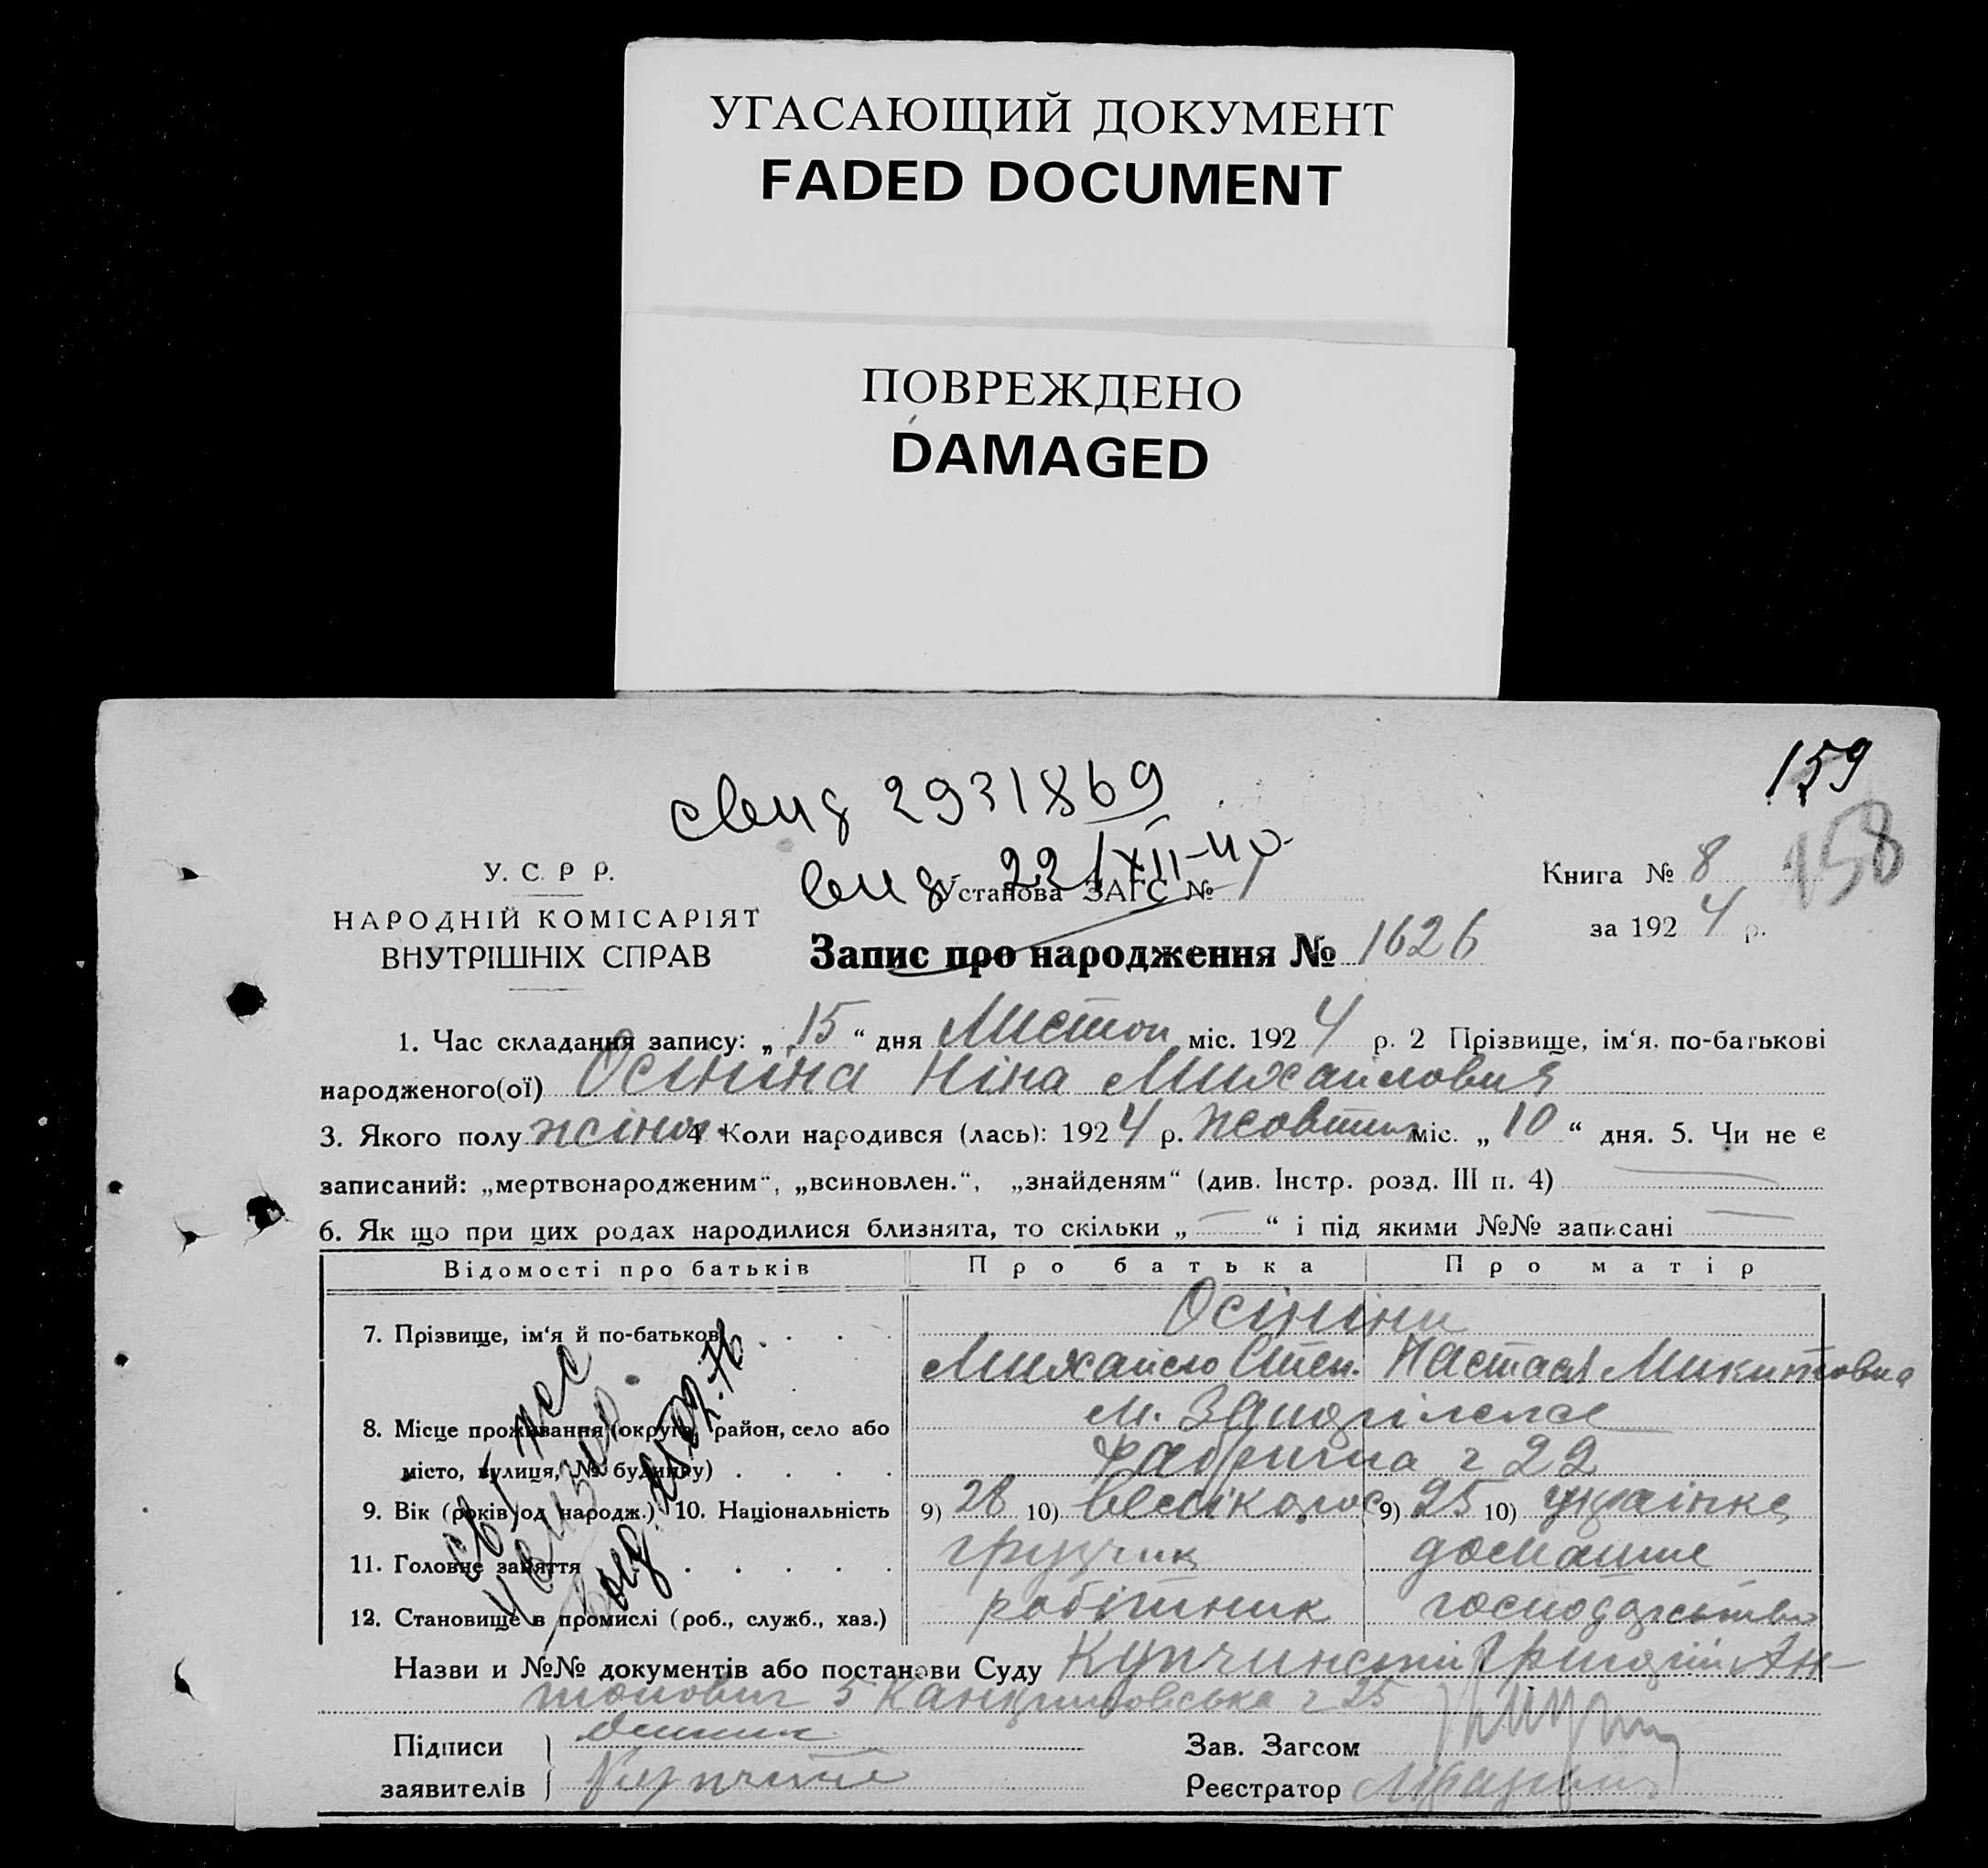 УГАСАЮЩИЙ ДОКУМЕНТ
FADED DOCUMENT
ПОВРЕЖДЕНО
DAMAGED
159
158
свид 2931869
22/XII-40
У. С. Р Р.
НАРОДНІЙ КОМІСАРІЯТ
ВНУТРІШНІХ СПРАВ
Установа ЗАГС № 1
Запис про народження № 1626
Книга № 8
за 1924 р.
1. Час складання запису: „ 15 “ дня Листоп міс. 1924 р. 2 Прізвище, ім‘я, по-батькові
народженого(ої) Осініна Ніна Михайловна
3. Якого полу жіноч. 4 Коли народився (лась): 1924 р. жовтня міс. „ 10 “ дня. 5. Чи не є
записаний: „мертвонародженим“, „всиновлен.“, „знайденям“ (див. Інстр. розд. III п. 4)
6. Як що при цих родах народилися близнята, то скільки „ — “ і під якими №№ записані —
Відомості про батьків Про батька Про матір
7. Прізвище, ім‘я й по-батькові Осініни
Михайло Степ. Настася Микитовна
8. Місце проживання (округа, район, село або м.
місто, вулиця, № будинку) Фабрична 22
9. Вік (років од народж.) 10. Національність 9) 28 10) 9) 25 10) українка
11. Головне заняття грузчик домашнє
12. Становище в промислі (роб., служб., хаз.) робітник господарство
Назви и №№ документів або постанови Суду Ан-
тонович 5 25
Підписи
заявителів
Зав. Загсом
Реєстратор